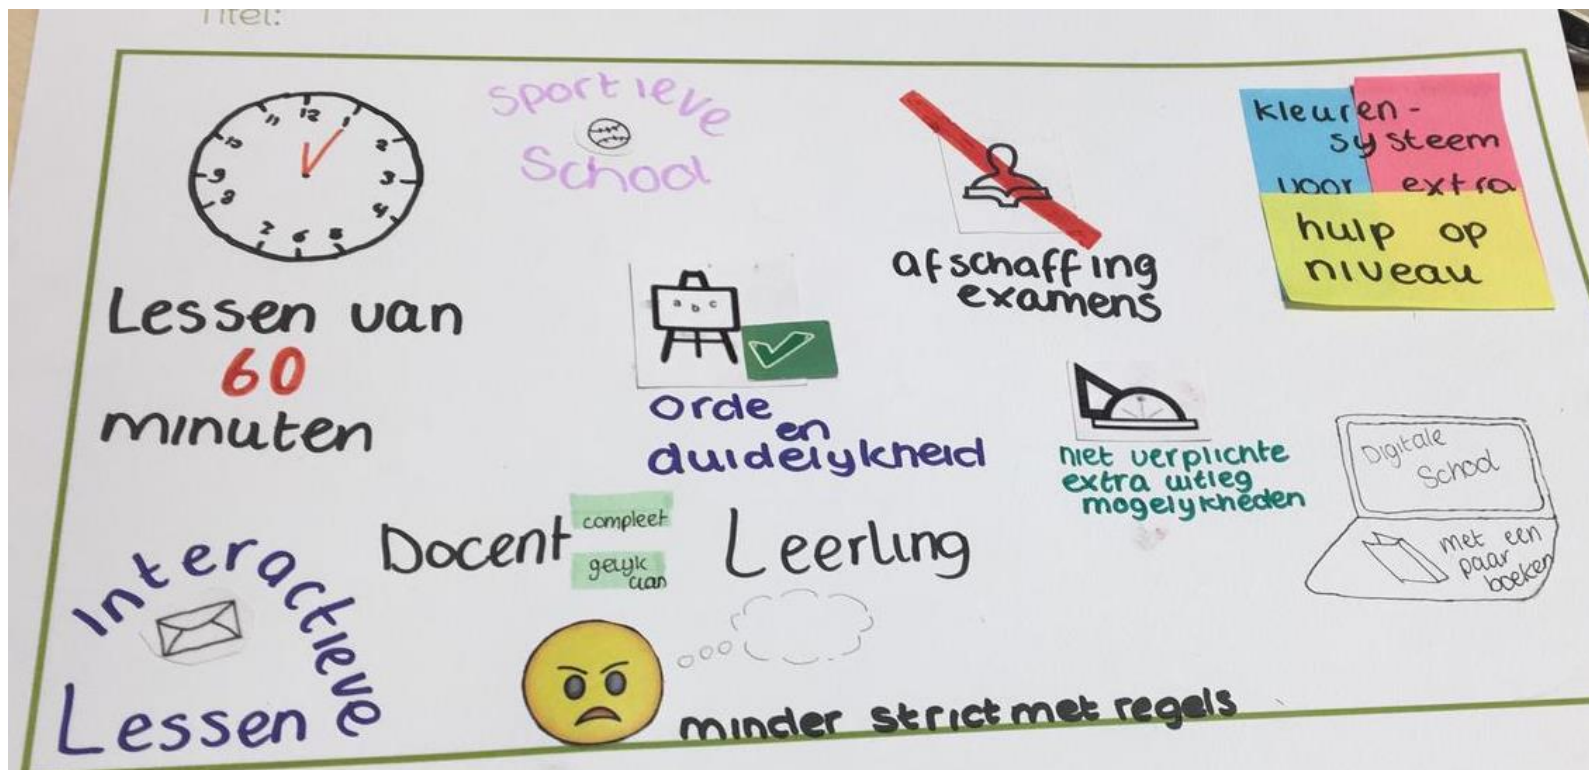 Titel:
12
1
2
3
4
5
6
7
8
9
10
11
Lessen van
60
minuten
sportieve
School
afschaffing
examens
kleuren-
systeem
voor extra
hulp op
niveau
a b c
orde
en
duidelykheid
niet verplichte
extra uitleg
mogelykheden
Digitale
School
met een
paar
boeken
Docent
compleet
gelyk
aan
Leerling
Interactieve
Lessen
minder strict met regels